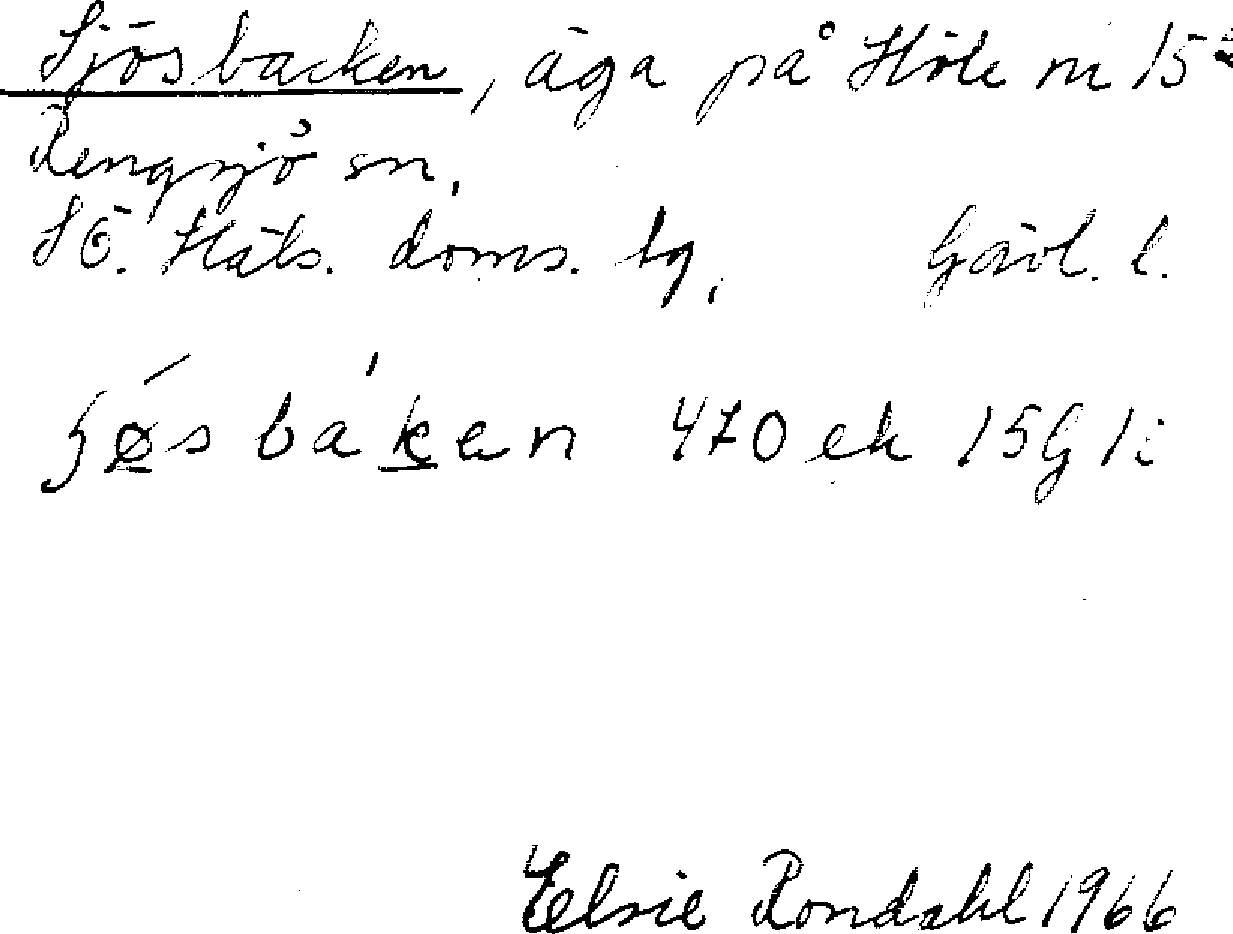 Sjösbacken, äga på Höle nr 15
Rengsjö sn.
SÖ. Häls. doms. tg. Gävl. l.
ʃǿ̱sbáḵen 470 ek 15G1i
Elsie Rondahl 1966